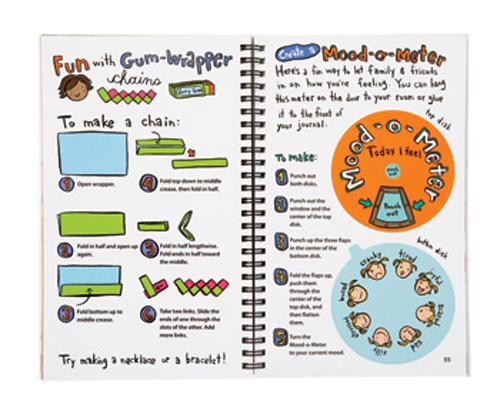 Fun with Gum-Wrapper
chains
To make a chain:
1 Open wrapper.
4 Fold top down to middle
crease, then fold in half.
2 Fold in half and open up
again.
5 Fold in half lengthwise.
Fold ends in half toward
the middle.
3 Fold bottom up to
middle crease.
6 Take two links. Slide the
ends of one through the
slots of the other. Add
more links.
Try making a necklace or a bracelet!
Create a Mood-o-Meter
Here's a fun way to let family & friends
in on how you're feeling. You can hang
this meter on the door to your room or glue
it to the front of
your journal.
top disk
Mood-o-Meter
Today I feel
punch out
Punch out
To make:
1 Punch out
both disks.
2 Punch out the
window and the
center of the top
disk.
3 Punch up the three flaps
in the center of the
bottom disk.
bottom disk
4 Fold the flaps up,
push them
through the
center of the
top disk, and
then flatten
them.
5 Turn the
Mood-o-Meter
to your current mood.
cranky
tired
joyful
scared
silly
bored
55